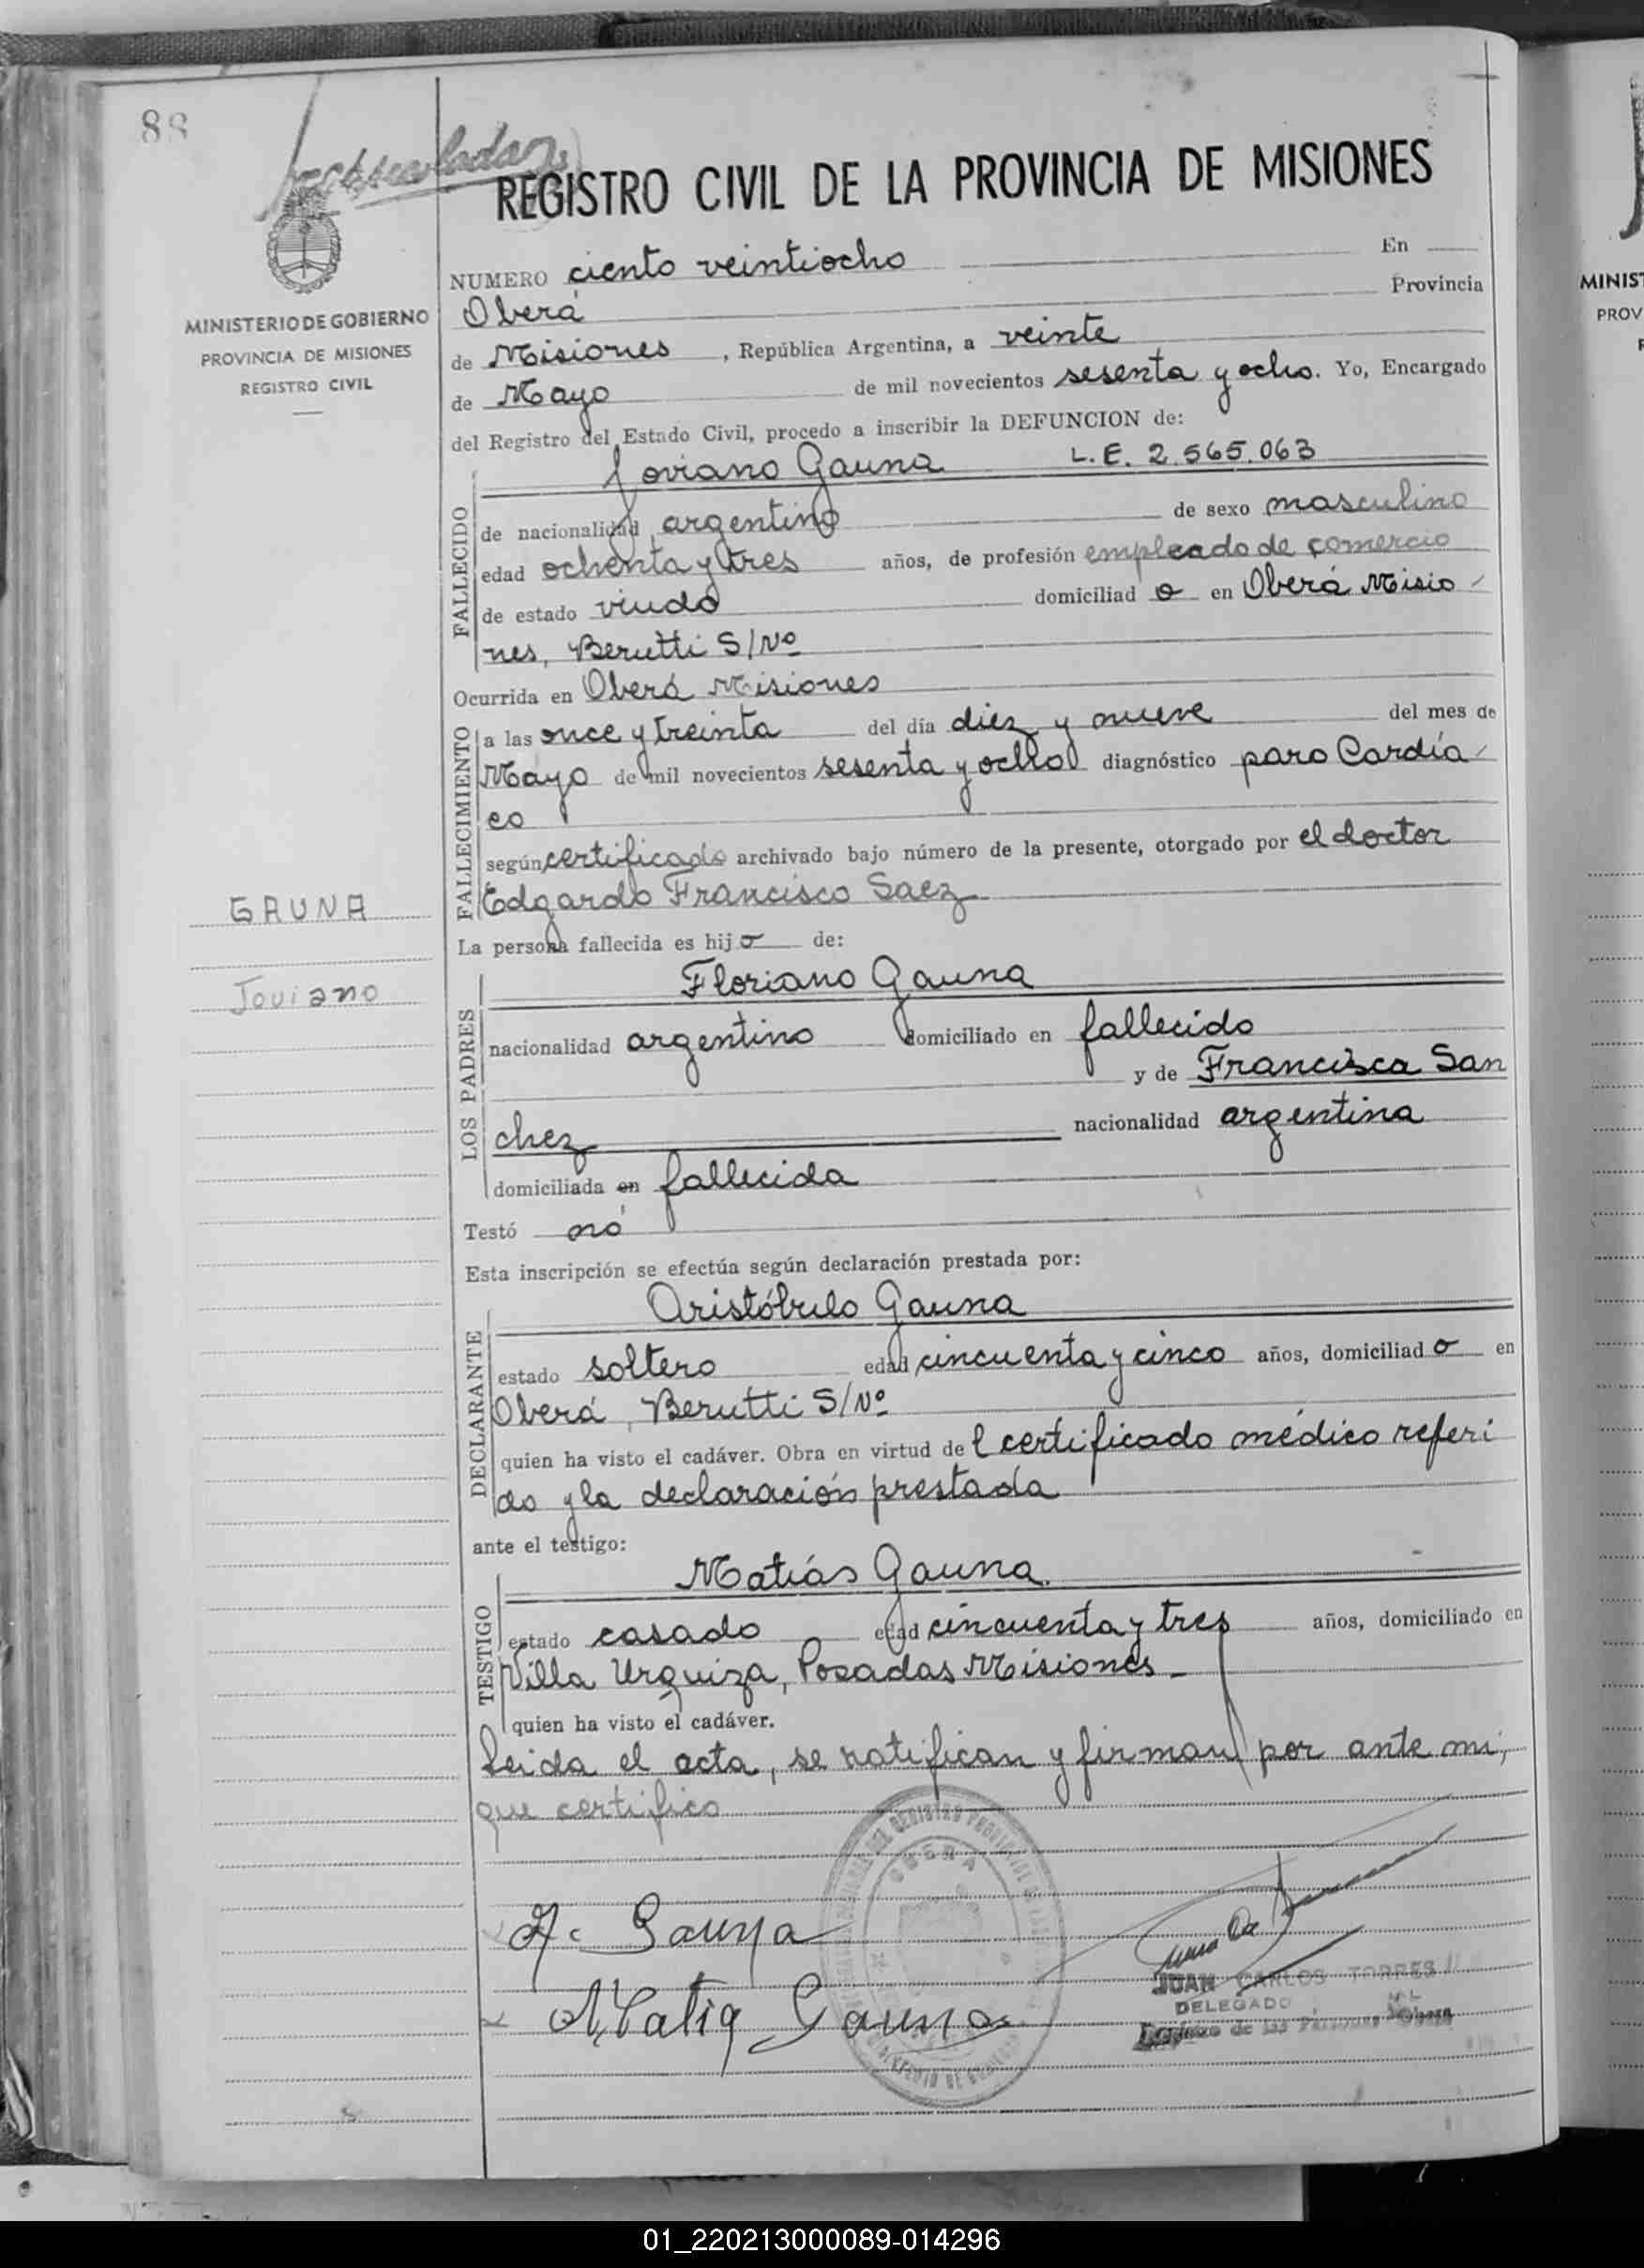 88
REGISTRO CIVIL DE LA PROVINCIA DE MISIONES
MINISTERIO DE GOBIERNO
PROVINCIA DE MISIONES
REGISTRO CIVIL
NUMERO ciento veintiocho En
Oberá Provincia
de Misiones , República Argentina, a veinte
de Mayo de mil novecientos sesenta y ocho. Yo, Encargado
del Registro del Estado Civil, procedo a inscribir la DEFUNCION de:
Joviano Gauna L.E. 2.565.063
FALLECIDO
de nacionalidad argentino de sexo masculino
edad ochenta y tres años, de profesión empleado de comercio
de estado viudo domiciliad o en Oberá Misio
nes, Berutti S/Nº
Ocurrida en Oberá Misiones
FALLECIMIENTO
a las once y treinta del día diez y nueve del mes de
Mayo de mil novecientos sesenta y ocho diagnóstico paro Cardía
co
según certificado archivado bajo número de la presente, otorgado por el doctor
Edgardo Francisco Saez
GAUNA
Joviano
La persona fallecida es hij o de:
LOS PADRES
Floriano Gauna
nacionalidad argentino domiciliado en fallecido
y de Francisca San
chez nacionalidad argentina
domiciliada en fallecida
Testó nó
Esta inscripción se efectúa según declaración prestada por:
DECLARANTE
Aristóbulo Gauna
estado soltero edad cincuenta y cinco años, domiciliad o en
Oberá, Berutti S/Nº
quien ha visto el cadáver. Obra en virtud de l certificado médico referi
do y la declaración prestada
ante el testigo:
TESTIGO
Matías Gauna.
estado casado edad cincuenta y tres años, domiciliado en
Villa Urquiza, Posadas Misiones
quien ha visto el cadáver.
Leida el acta, se notifican y firman por ante mi,
que certifico
OBERA
A. Gauna
Matia Gauna
JUAN CARLOS TORRES
DELEGADO
Registro de las Personas
MINIST
PROV
01_220213000089-014296